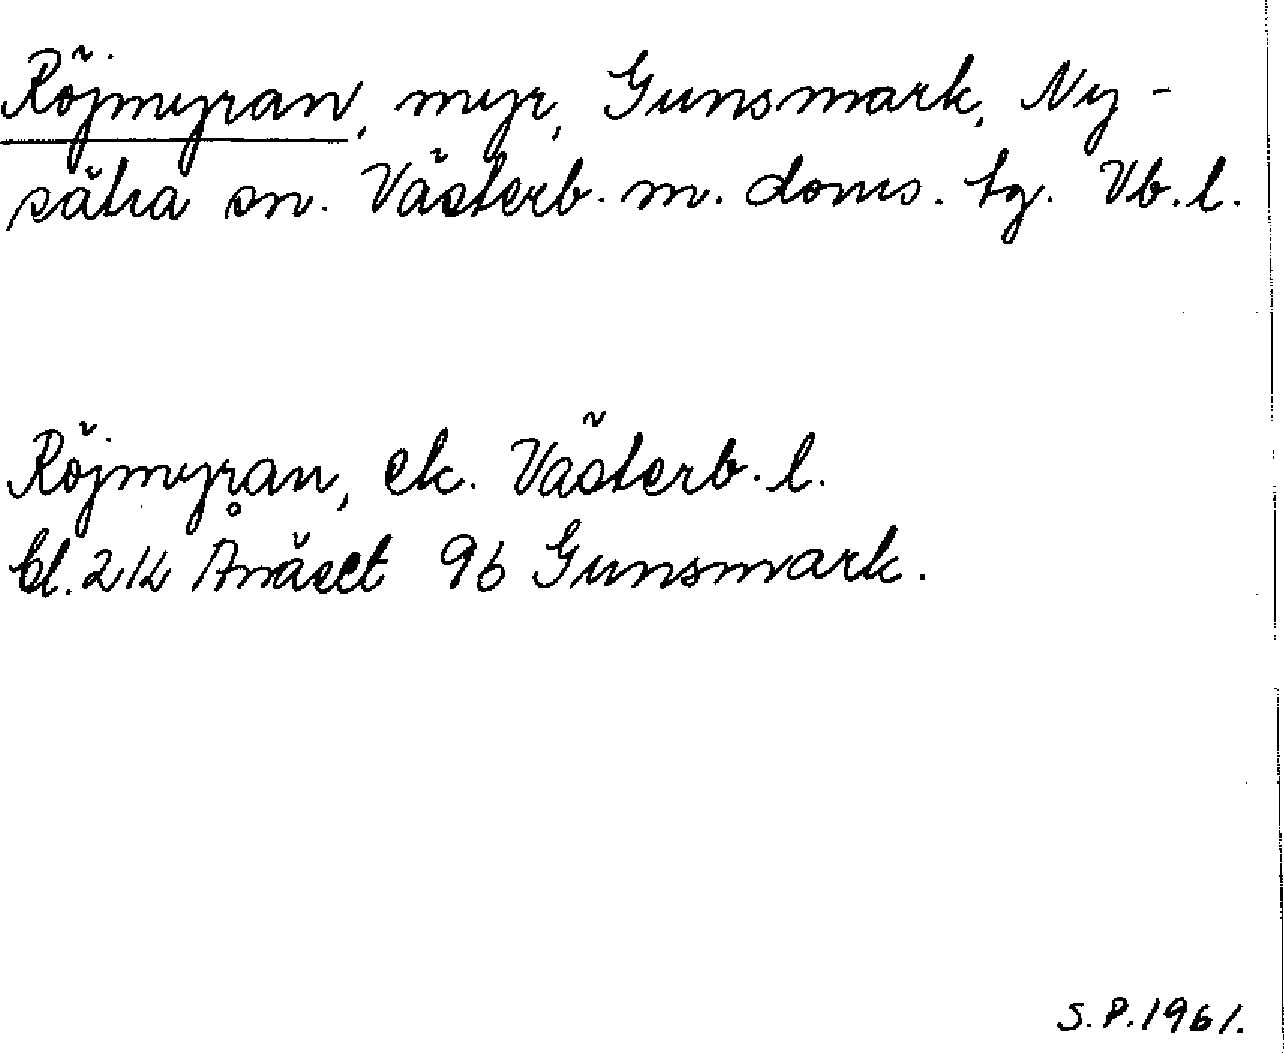 Röjmyran, myr, Gunsmark, Ny-
sätra sn. Västerb. m. doms. tg. Vb. l.
Röjmyran, ek. Västerb. l.
bl. 21K Ånäset 9b Gunsmark.
S.P. 1961.